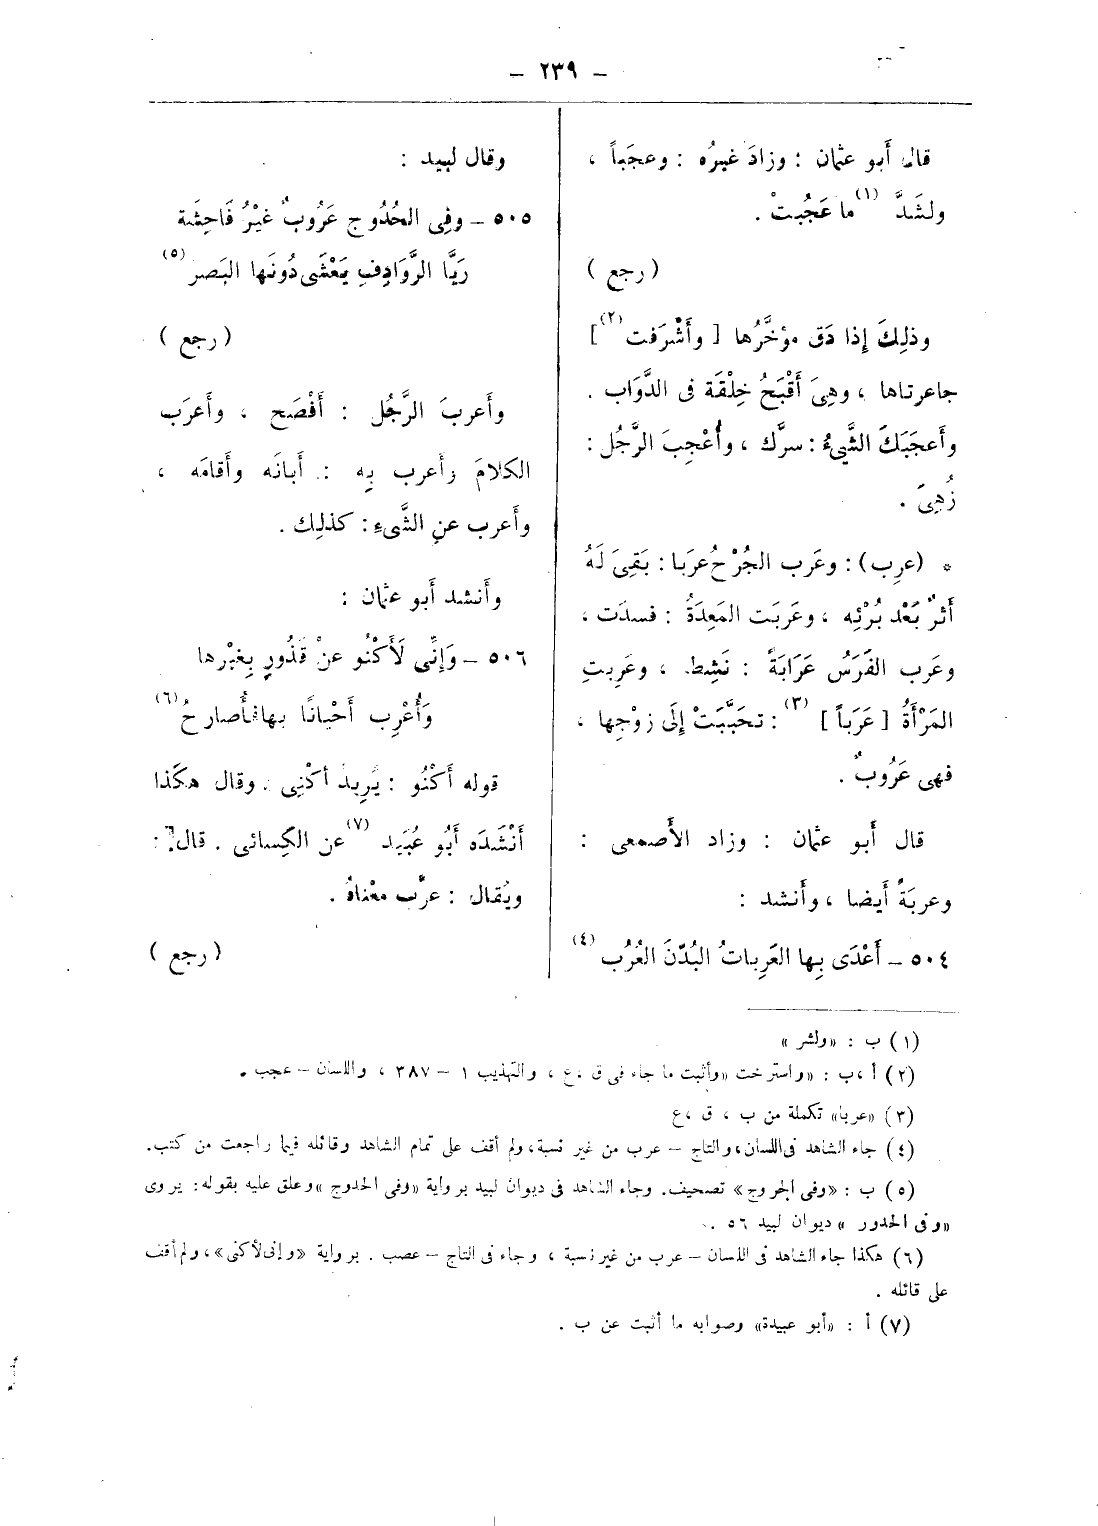 – ٢٣٩ –
قال أَبو عثمان : وزادَ غيرُه : وعجَباً ،
ولشَدَّ (١) ما عَجُبتْ .
( رجع )
وذلِكَ إِذا دَق مؤخَّرُها [ وأَشْرَفت (٢) ]
جاعرتاها ، وهِىَ أَقْبَحُ خِلْقَة فى الدَّوَاب .
وأَعجَبَكَ الشَّىءُ : سرَّك ، وأُعْجِبَ الرَّجُل :
زُهِىَ .
* (عرِب) : وعَرب الجُرْحُ عربَا : بَقِىَ لَهُ
أَثرٌ بَعْد بُرْئِه ، وعَرِبَت المَعِدَةُ : فسدَت ،
وعَرب الفَرَسُ عَرَابَةً : نَشِط ، وعَرِبتِ
المَرْأَةُ [ عَرَباً ] (٣) : تحَبَّبَتْ إِلَى زوْجِها ،
فهى عَرُوبٌ .
قال أَبو عثمان : وزاد الأَصمعى :
وعربَةً أَيضا ، وأَنشد :
٥٠٤ – أَعْدَى بِها العَرِباتُ البُدّنَ العُرُب (٤)
وقال لبيد :
٥٠٥ – وفِى الحُدُوج عَرُوبٌ غيْرُ فَاحِشَة
رَيَّا الرَّوَادِفِ يَعْشَى دُونَها البَصر (٥)
( رجع )
وأَعربَ الرَّجُل : أَفْصَح ، وأَعرَب
الكلامَ وأَعرب بِه : أَبانَه وأَقامَه ،
وأَعرب عنِ الشَّىءِ : كذلِك .
وأَنشد أَبو عثمان :
٥٠٦ – وَإِنِّى لَأَكْنُو عنْ قذُورٍ بِغيْرها
وَأُعْرِب أَحْيانًا بها فأُصارحُ (٦)
قوله أَكْنُو : يُرِيدُ أكْنِى . وقال هكَذا
أَنْشَدَه أَبُو عُبَيد (٧) عن الكِسائى . قال :
ويُقال : عرَّب معْناهُ .
( رجع )
(١) ب : «ولشر»
(٢) أ ، ب : «واسترخت «وأثبت ما جاء فى ق ، ع ، والتهذيب ١ – ٣٨٧ ، واللسان – عجب .
(٣) «عربا» تكملة من ب ، ق ، ع
(٤) جاء الشاهد فى اللسان ، والتاج – عرب من غير نسبة ، ولم أقف على تمام الشاهد وقائله فيما راجعت من كتب.
(٥) ب : «وفى الجروح» تصحيف. وجاء الشاهد فى ديوان لبيد برواية «وفى الحدوج» وعلق عليه بقوله : يروى
«وفى الخدور » ديوان لبيد ٥٦ .
(٦) هكذا جاء الشاهد فى اللسان – عرب من غير نسبة ، وجاء فى التاج – عصب . برواية «وإنى لأكنى» ، ولم أقف
على قائله .
(٧) أ : «أبو عبيدة» وصوابه ما أثبت عن ب .